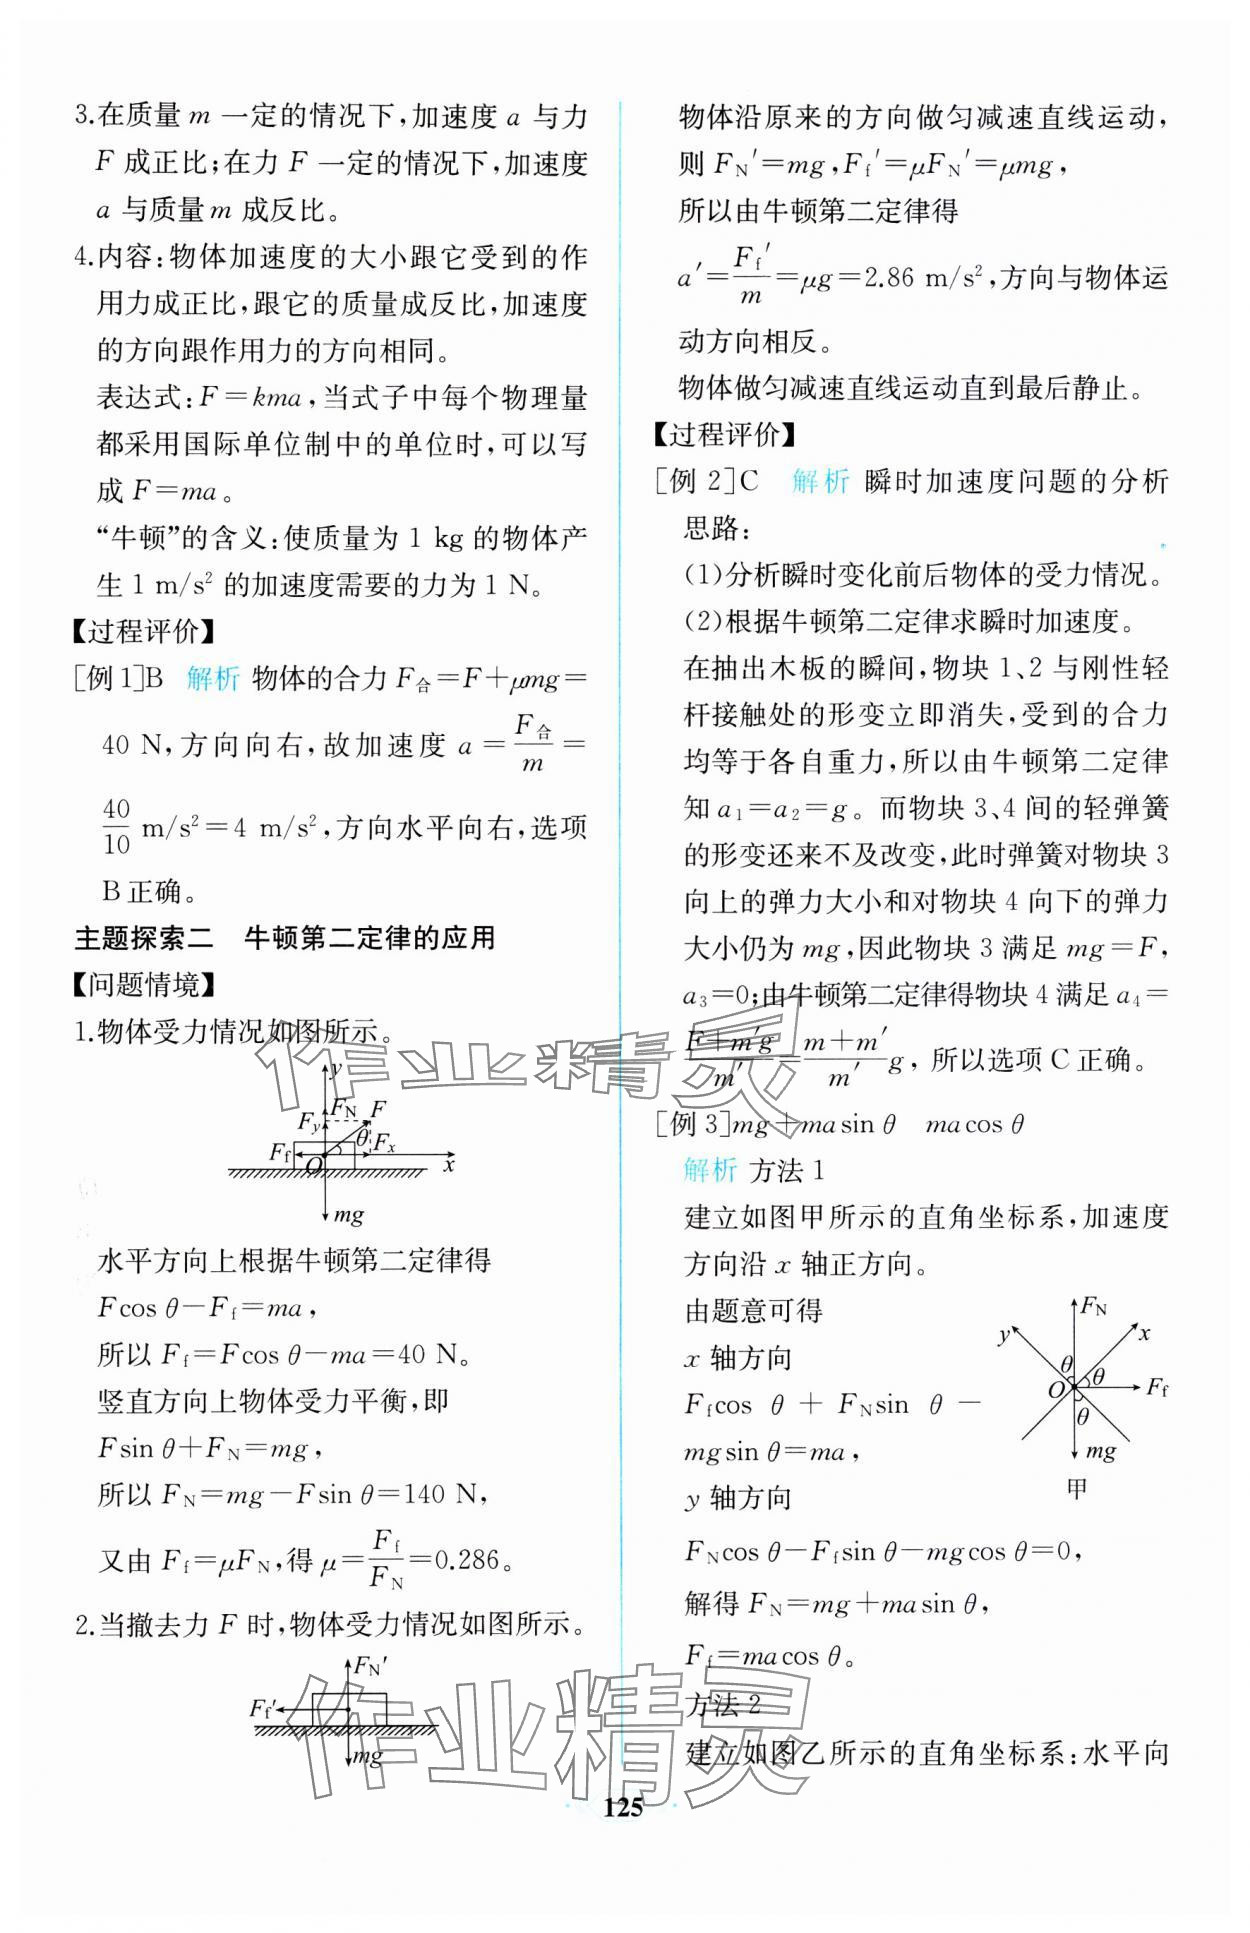 3.在质量 m 一定的情况下,加速度 a 与力
F 成正比;在力 F 一定的情况下,加速度
a 与质量 m 成反比。
4.内容:物体加速度的大小跟它受到的作
用力成正比,跟它的质量成反比,加速度
的方向跟作用力的方向相同。
表达式:F=kma,当式子中每个物理量
都采用国际单位制中的单位时,可以写
成 F=ma。
“牛顿”的含义:使质量为 1 kg 的物体产
生 1 m/s² 的加速度需要的力为 1 N。
【过程评价】
[例 1]B 解析 物体的合力 F合=F+μmg=
40 N,方向向右,故加速度 a=F合/m=
40/10 m/s²=4 m/s²,方向水平向右,选项
B 正确。
主题探索二 牛顿第二定律的应用
【问题情境】
1.物体受力情况如图所示。
y
FN F
Fy
θ Fx
Ff
O x
mg
水平方向上根据牛顿第二定律得
Fcos θ-Ff=ma,
所以 Ff=Fcos θ-ma=40 N。
竖直方向上物体受力平衡,即
Fsin θ+FN=mg,
所以 FN=mg-Fsin θ=140 N,
又由 Ff=μFN,得 μ=Ff/FN=0.286。
2.当撤去力 F 时,物体受力情况如图所示。
FN′
Ff′
mg
物体沿原来的方向做匀减速直线运动,
则 FN′=mg,Ff′=μFN′=μmg,
所以由牛顿第二定律得
a′=Ff′/m=μg=2.86 m/s²,方向与物体运
动方向相反。
物体做匀减速直线运动直到最后静止。
【过程评价】
[例 2]C 解析 瞬时加速度问题的分析
思路:
(1)分析瞬时变化前后物体的受力情况。
(2)根据牛顿第二定律求瞬时加速度。
在抽出木板的瞬间,物块 1、2 与刚性轻
杆接触处的形变立即消失,受到的合力
均等于各自重力,所以由牛顿第二定律
知 a1=a2=g。而物块 3、4 间的轻弹簧
的形变还来不及改变,此时弹簧对物块 3
向上的弹力大小和对物块 4 向下的弹力
大小仍为 mg,因此物块 3 满足 mg=F,
a3=0;由牛顿第二定律得物块 4 满足 a4=
F+m′g/m′=m+m′/m′ g,所以选项 C 正确。
[例 3]mg+masin θ macos θ
解析 方法 1
建立如图甲所示的直角坐标系,加速度
方向沿 x 轴正方向。
由题意可得
x 轴方向
Ffcos θ + FNsin θ -
mgsin θ=ma,
y 轴方向
FN
y x
θ
θ
O Ff
θ
mg
甲
FNcos θ-Ffsin θ-mgcos θ=0,
解得 FN=mg+masin θ,
Ff=macos θ。
方法 2
建立如图乙所示的直角坐标系:水平向
125
作业精灵
作业精灵